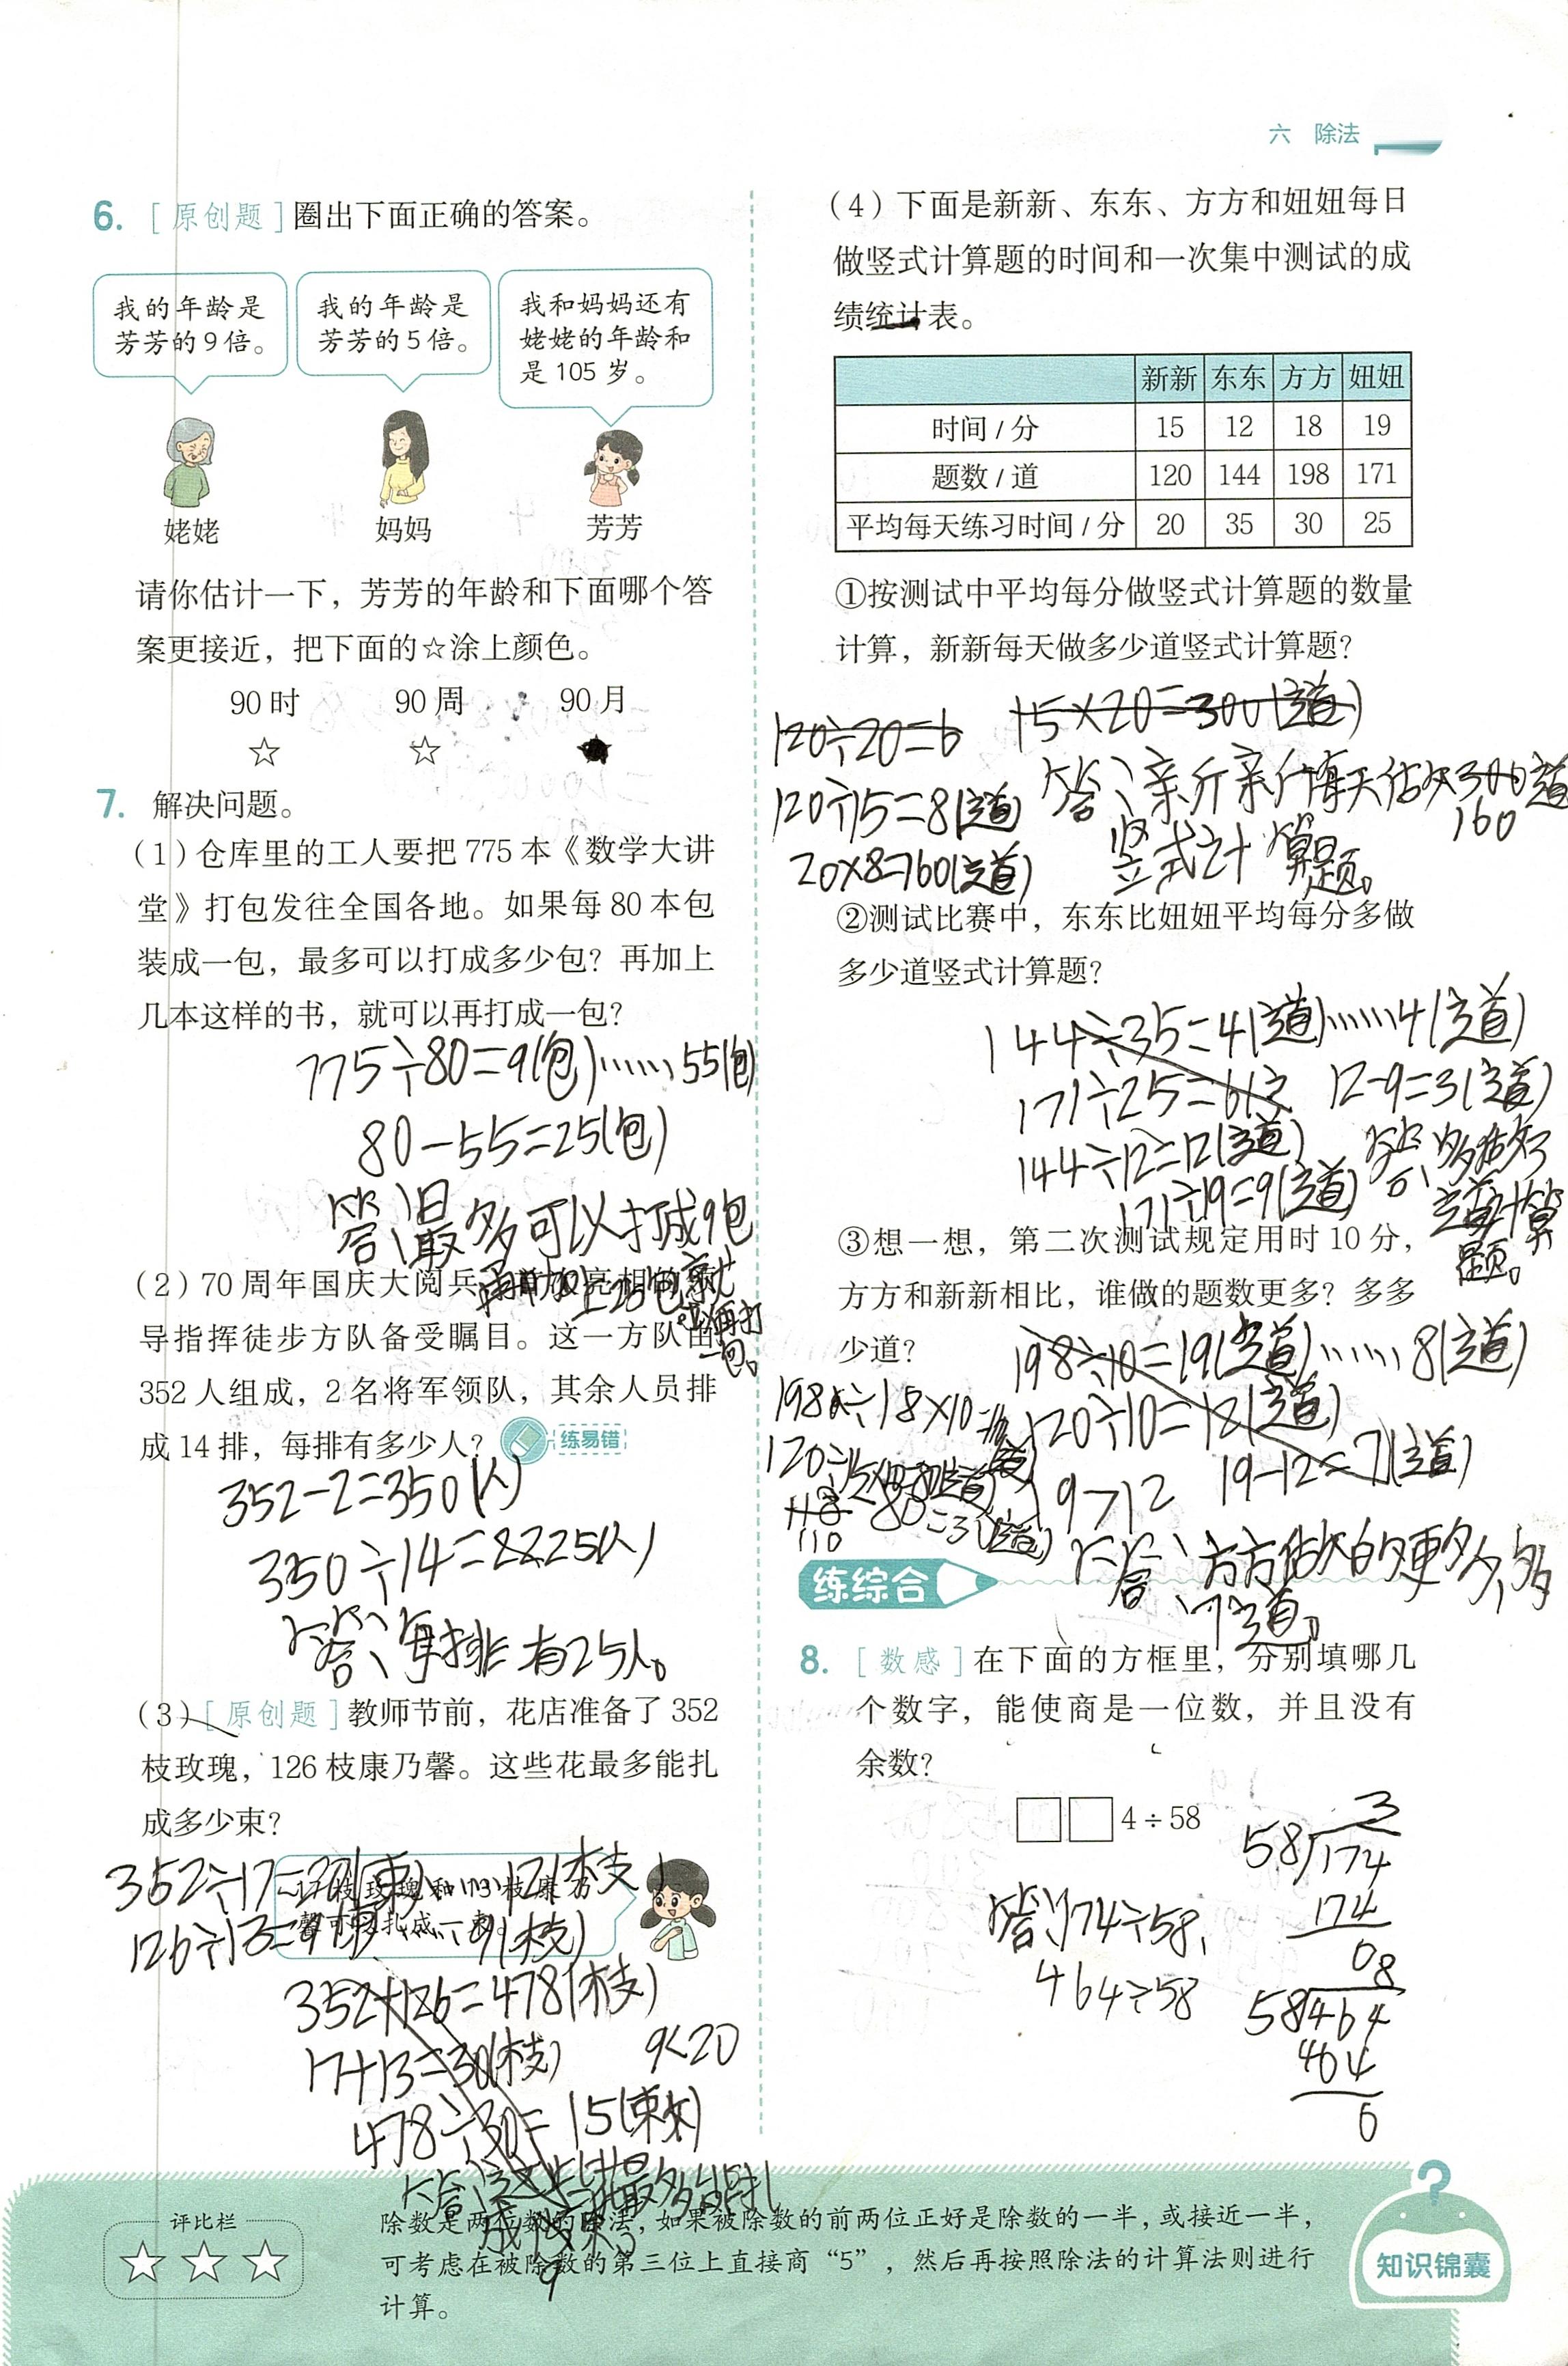 六 除法
6. [原创题]圈出下面正确的答案。
我的年龄是
芳芳的9倍。
我的年龄是
芳芳的5倍。
我和妈妈还有
姥姥的年龄和
是105岁。
姥姥 妈妈 芳芳
请你估计一下，芳芳的年龄和下面哪个答
案更接近，把下面的☆涂上颜色。
90时 90周 90月
☆ ☆
7. 解决问题。
(1)仓库里的工人要把775本《数学大讲
堂》打包发往全国各地。如果每80本包
装成一包，最多可以打成多少包？再加上
几本这样的书，就可以再打成一包？
775÷80=9(包)……55(包)
80-55=25(包)
答：最多可以打成9包
再加上25包就
可以再打
一包。
(2)70周年国庆大阅兵
导指挥徒步方队备受瞩目。这一方队由
352人组成，2名将军领队，其余人员排
成14排，每排有多少人？ 练易错
352-2=350(人)
350÷14=25(人)
答：每排有25人。
(3)[原创题]教师节前，花店准备了352
枝玫瑰，126枝康乃馨。这些花最多能扎
成多少束？
17枝玫瑰和13枝康乃
馨可以扎成一束。
352÷17=20(束)……12(枝)
126÷13=9(束)……9(枝)
352+126=478(枝)
17+13=30(枝) 9<20
478÷30=15(束)
答：这些花最多能扎
成9束。
(4)下面是新新、东东、方方和妞妞每日
做竖式计算题的时间和一次集中测试的成
绩统计表。
新新 东东 方方 妞妞
时间/分 15 12 18 19
题数/道 120 144 198 171
平均每天练习时间/分 20 35 30 25
①按测试中平均每分做竖式计算题的数量
计算，新新每天做多少道竖式计算题？
120÷20=6 15×20=300(道)
120÷15=8(道)
20×8=160(道)
答：新新每天做300道
160
竖式计算题。
②测试比赛中，东东比妞妞平均每分多做
多少道竖式计算题？
144÷35=4(道)……4(道)
171÷25=6(道 12-9=3(道)
144÷12=12(道)
171÷19=9(道)
答：多做3
道计算
题。
③想一想，第二次测试规定用时10分，
方方和新新相比，谁做的题数更多？多多
少道？
198÷10=19(道)……8(道)
198÷18×10=
120÷10=12(道)
19-12=7(道)
19>12
110
答：方方做的更多，多
7道。
练综合
8. [数感]在下面的方框里，分别填哪几
个数字，能使商是一位数，并且没有
余数？
□□4÷58
答：174÷58，
464÷58
3
58 174
174
0
8
58 464
464
0
评比栏
除数是两位数的除法，如果被除数的前两位正好是除数的一半，或接近一半，
可考虑在被除数的第三位上直接商“5”，然后再按照除法的计算法则进行
计算。
知识锦囊